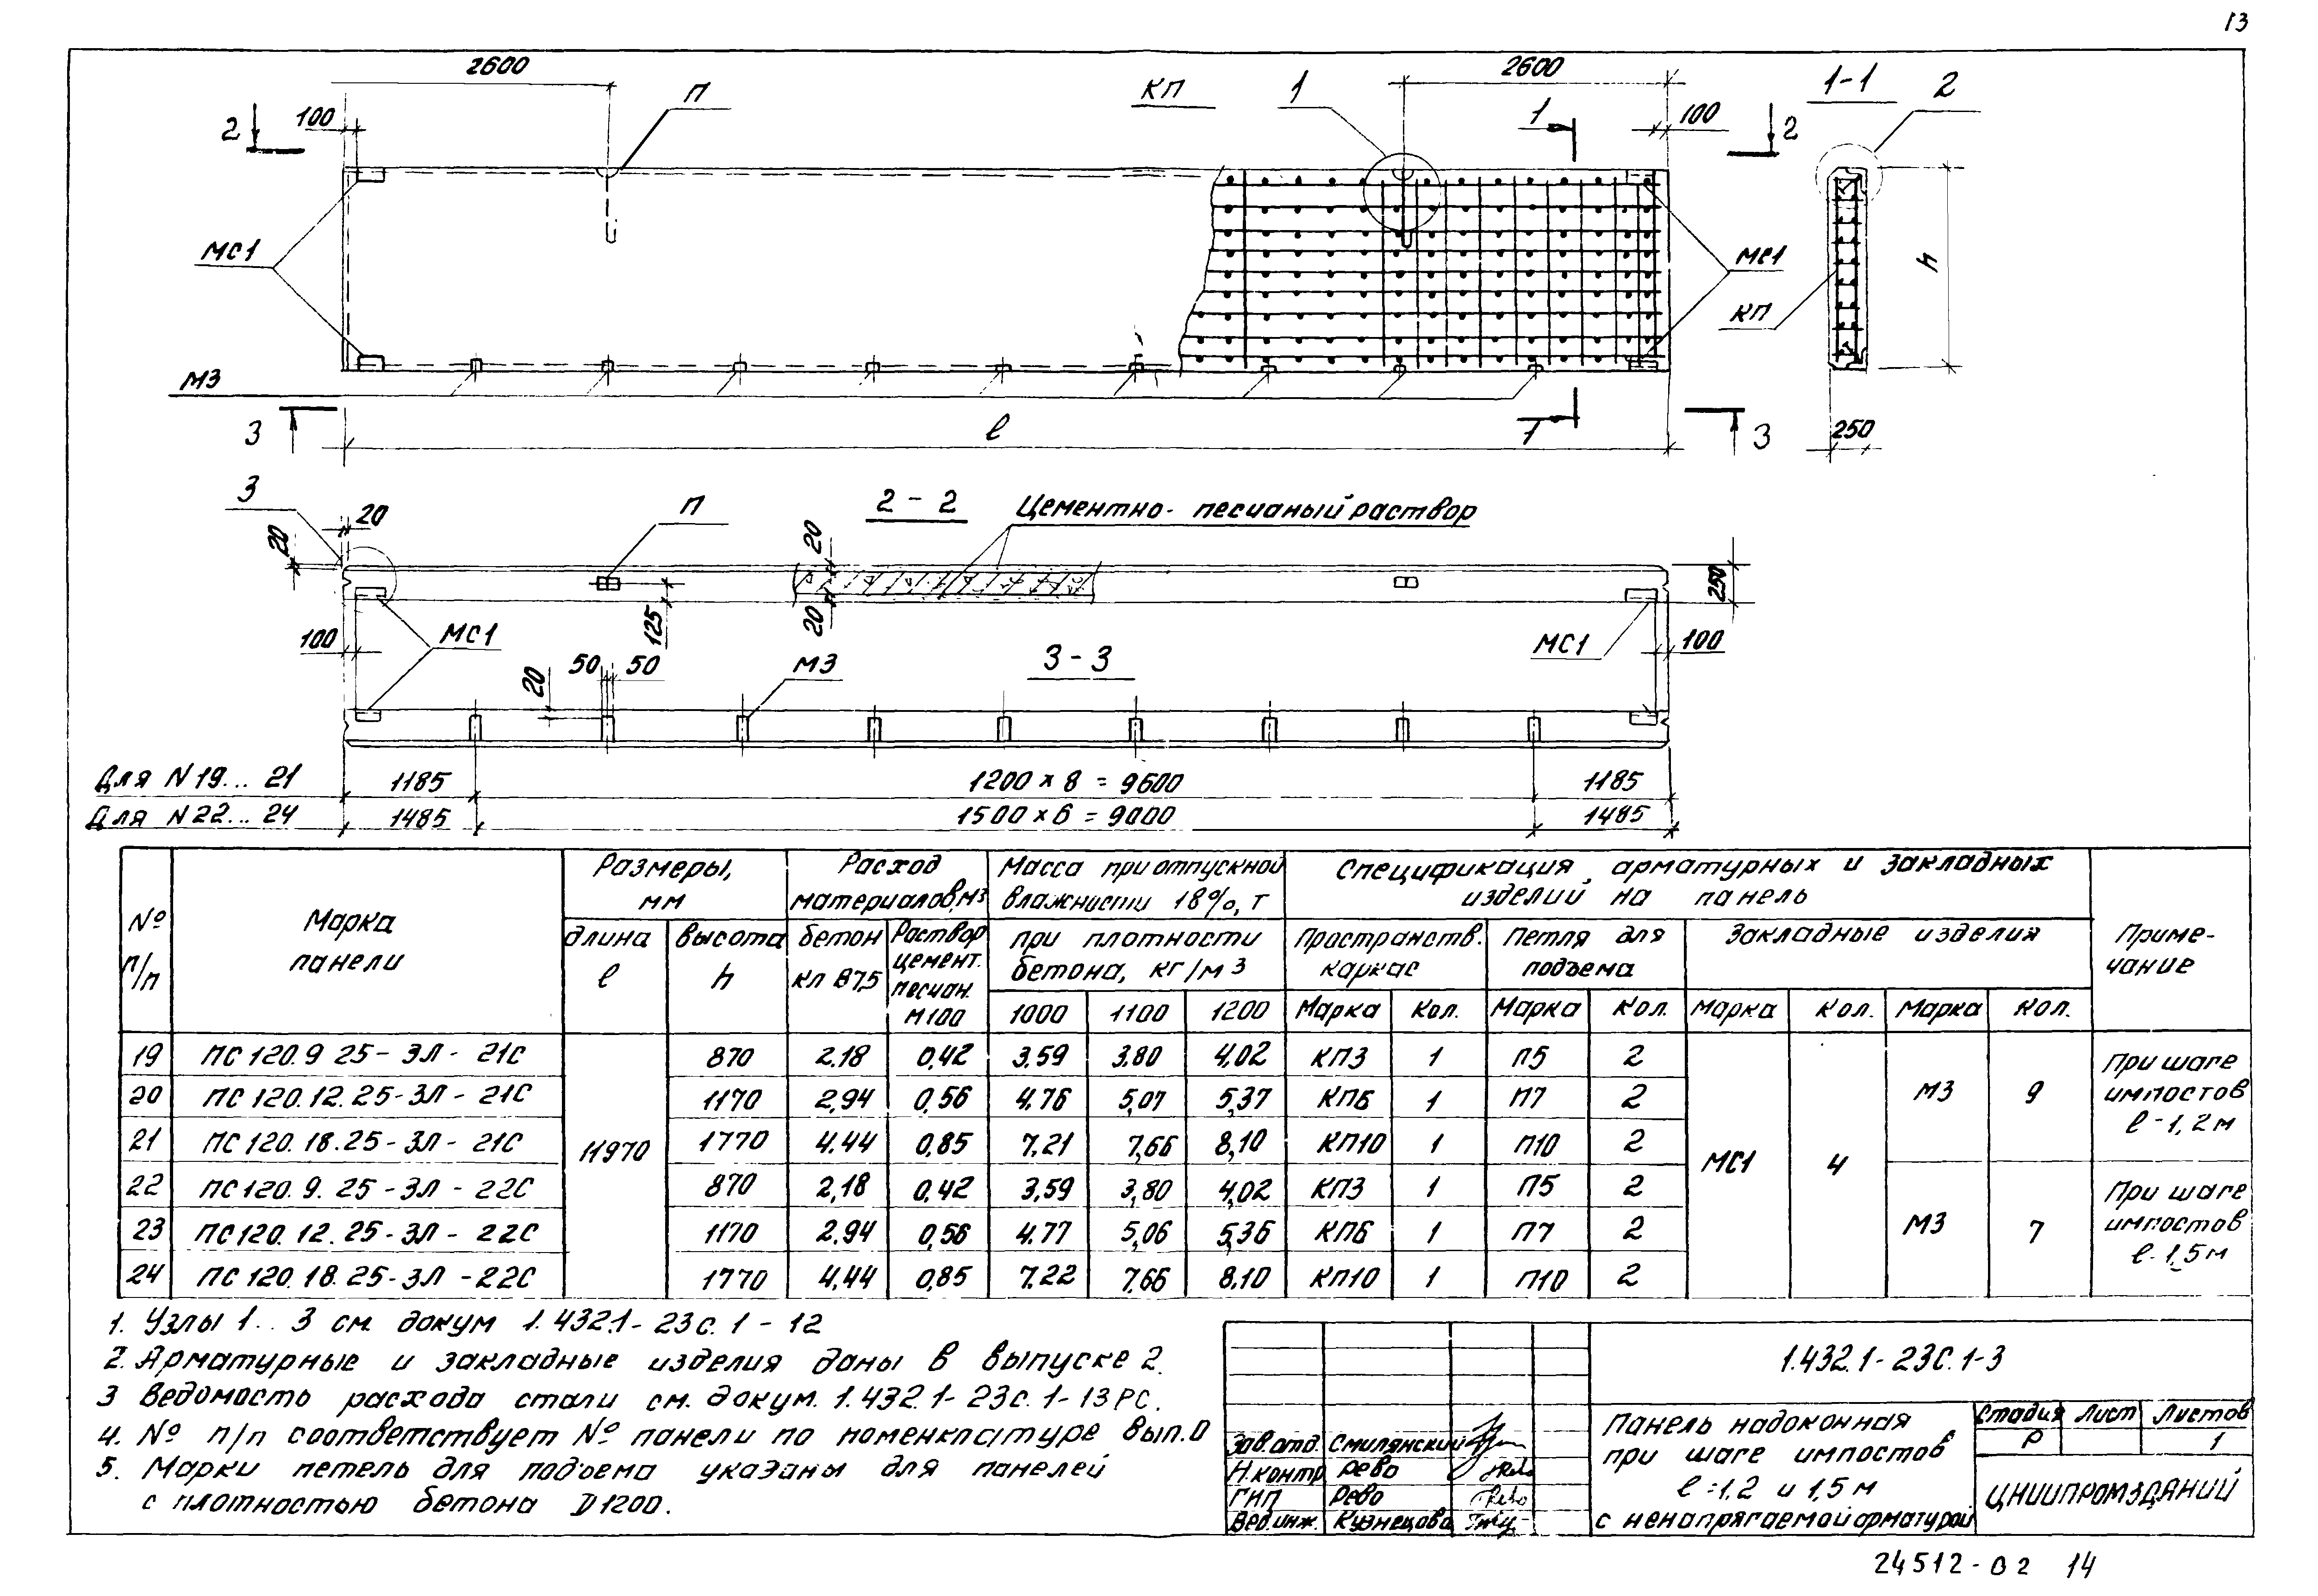 13
2600
2600
П
КП
1
1-1
2
2
100
1
100
2
МС1
МС1
КП
h
М3
3
l
1
3
250
3
20
20
П
2-2
Цементно-песчаный раствор
20
20
125
250
100
МС1
50
50
20
М3
3-3
МС1
100
Для N 19... 21
1185
1200 х 8 = 9600
1185
Для N 22... 24
1485
1500 х 6 = 9000
1485
№ п/п
Марка панели
Размеры, мм
длина l
высота h
Расход материалов, м3
бетон кл В7,5
Раствор цемент. песчан. М100
Масса при отпускной влажности 18%, т
при плотности бетона, кг/м3
1000 1100 1200
Спецификация арматурных и закладных изделий на панель
Пространств. каркас
Петля для подъема
Закладные изделия
Марка Кол. Марка Кол. Марка Кол. Марка Кол.
Примечание
19 ПС 120.9 25-3Л-21С 870 2.18 0,42 3,59 3,80 4,02 КП3 1 П5 2
20 ПС 120.12.25-3Л-21С 1170 2,94 0,56 4.76 5,07 5,37 КП6 1 П7 2
21 ПС 120.18.25-3Л-21С 1770 4.44 0,85 7,21 7,66 8,10 КП10 1 П10 2
22 ПС 120.9.25-3Л-22С 870 2,18 0,42 3,59 3,80 4,02 КП3 1 П5 2
23 ПС 120.12.25-3Л-22С 1170 2.94 0,56 4.77 5,06 5,36 КП6 1 П7 2
24 ПС 120.18.25-3Л-22С 1770 4,44 0,85 7.22 7,66 8.10 КП10 1 П10 2
11970
МС1 4
М3 9
При шаге
импостов
l-1,2м
М3 7
При шаге
импостов
l-1,5м
1. Узлы 1...3 см. докум 1.432.1-23с.1-12
2. Арматурные и закладные изделия даны в выпуске 2.
3 Ведомость расхода стали см. докум. 1.432.1-23с.1-13РС.
4. № п/п соответствует № панели по номенклатуре вып.0
5. Марки петель для подъема указаны для панелей
с плотностью бетона D1200.
1.432.1-23С.1-3
Зав.отд. Смилянский
Н.контр Рево
ГИП Рево
Вед.инж. Кузнецова
Панель надоконная
при шаге импостов
l=1,2 и 1,5 м
с ненапрягаемой арматурой
Стадия Лист Листов
Р 1
ЦНИИПРОМЗДАНИЙ
24512-02 14